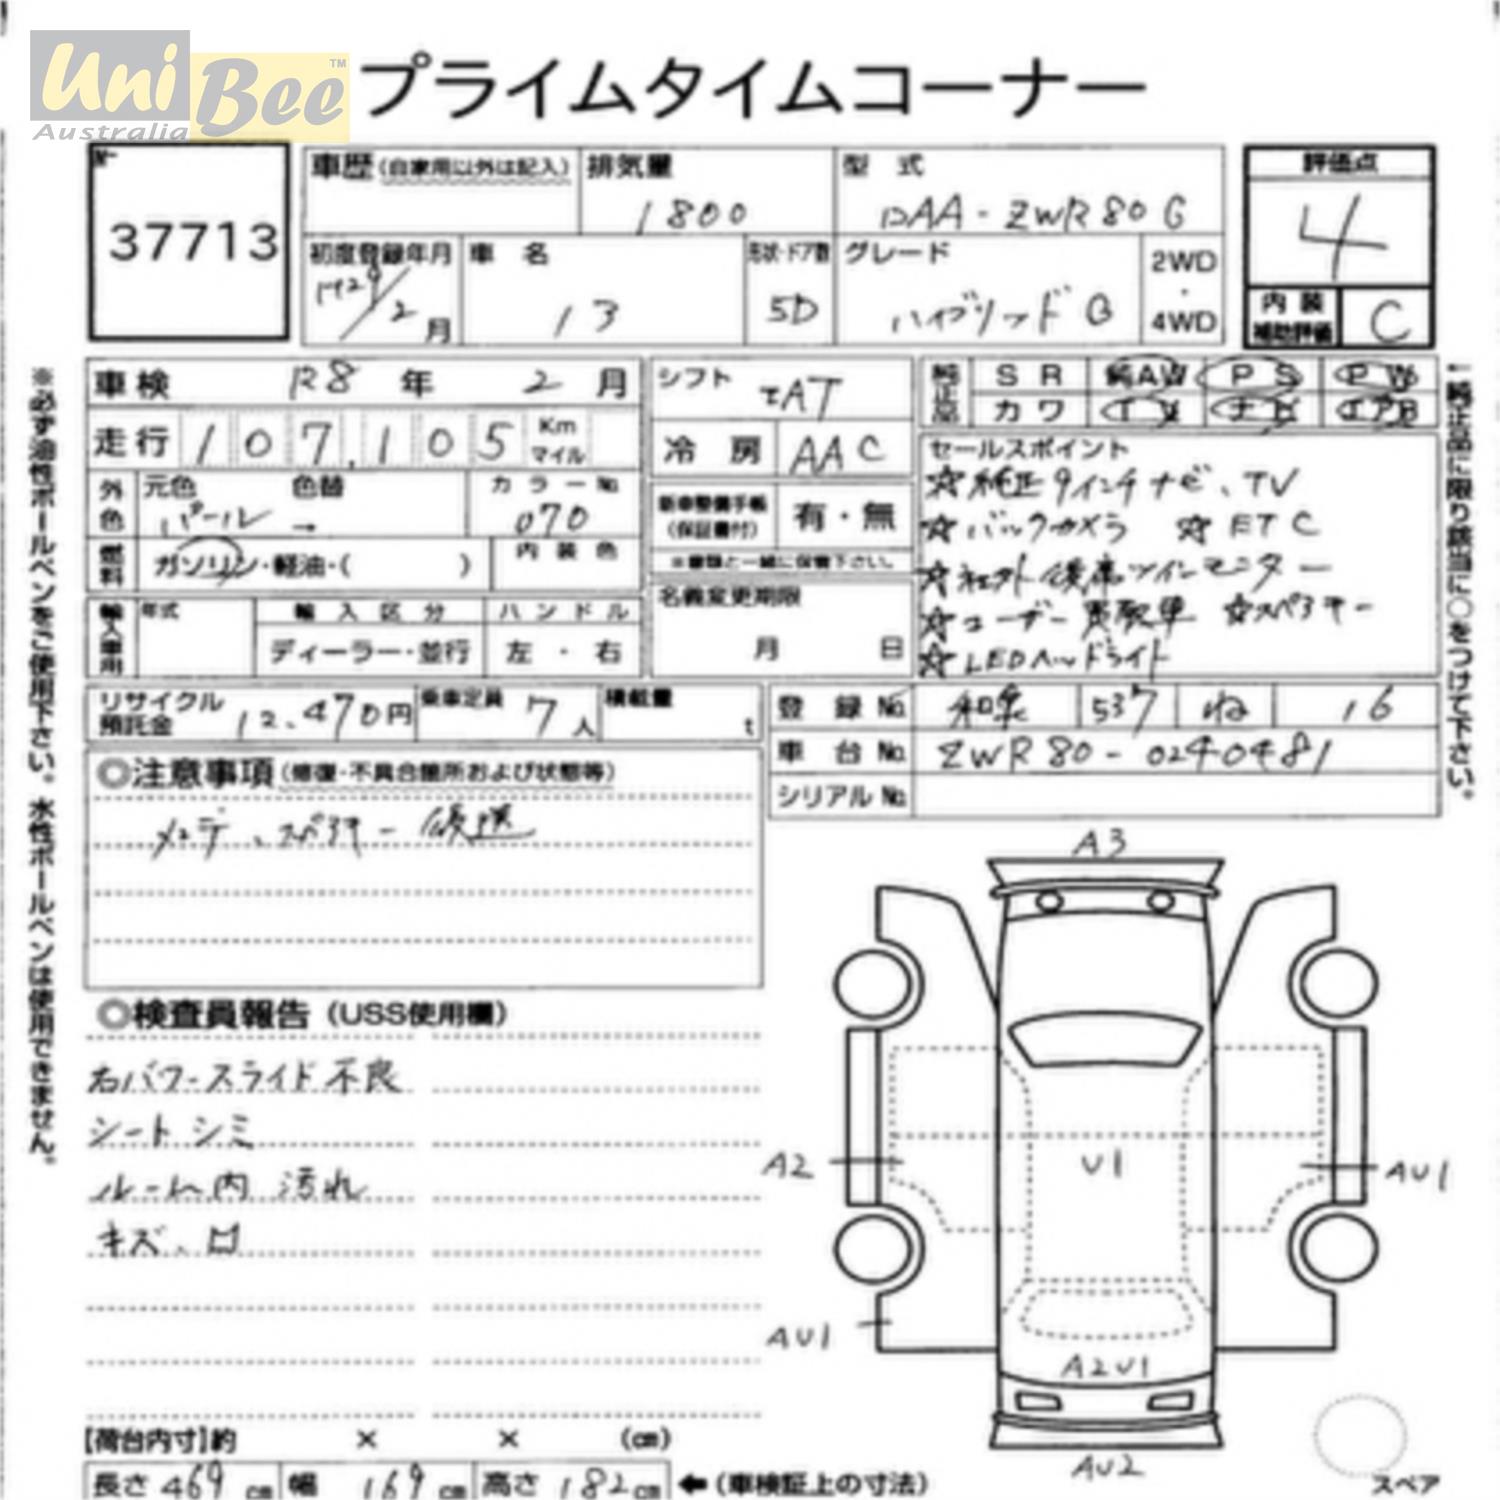 Uni Bee™
Australia
プライムタイムコーナー
37713
車歴(自家用以外は記入) 排気量 型式 評価点
1800 DAA-ZWR80G 4
初度登録年月 車名 形状・ドア数 グレード 2WD・4WD
H29/2月 13 5D ハイブリッドG
内装補助評価 C
車検 R8年 2月
走行 107,105 Km マイル
外色 元色 色替 カラーNo.
パール → 070
燃料 ガソリン・軽油・( ) 内装色
輸入車用 年式 輸入区分 ハンドル
ディーラー・並行 左・右
シフト IAT
冷房 AAC
新車整備手帳(保証書付) 有・無
※書類と一緒に保管下さい。
名義変更期限
月 日
純正品 SR 純AW PS PW
カワ TV ナビ エアB
セールスポイント
☆純正9インチナビ、TV
☆バックカメラ ☆ETC
☆社外後席ツインモニター
☆ユーザー買取車 ☆スペアキー
☆LEDヘッドライト
←純正品に限り該当に○をつけて下さい。
※必ず油性ボールペンをご使用下さい。水性ボールペンは使用できません。
リサイクル預託金 12,470円 乗車定員 7人 積載量 t
登録No. 和泉 537 ね 16
車台No. ZWR80-0240481
シリアルNo.
◎注意事項(修復・不具合箇所および状態等)
スペアキー 後送
◎検査員報告(USS使用欄)
右パワースライド不良
シートシミ
ルーム内 汚れ
キズ、凹
A3
A2
U1
AU1
AU1
A2U1
AU2
スペア
【荷台内寸】約 × × (cm)
長さ 469cm 幅 169cm 高さ 182cm ←(車検証上の寸法)